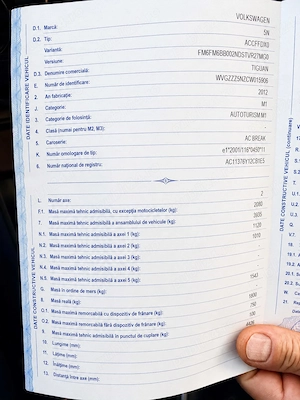 D.1. Marcă: VOLKSWAGEN
D.2. Tip: 5N
Variantă: ACCFFDX0
Versiune: FM6FM6BB002NDSTVR27MG0
D.3. Denumire comercială: TIGUAN
E. Număr de identificare: WVGZZZ5NZCW015906
2. An fabricație: 2012
J. Categorie: M1
3. Categorie de folosință: AUTOTURISM M1
4. Clasa (numai pentru M2, M3): -
5. Caroserie: AC BREAK
K. Număr omologare de tip: e1*2001/116*0450*11
6. Număr național de registru: AC11376Y12C81E5
DATE IDENTIFICARE VEHICUL
L. Număr axe: 2
F.1. Masă maximă tehnic admisibilă, cu excepția motocicletelor (kg): 2080
7. Masă maximă tehnic admisibilă a ansamblului de vehicule (kg):
N.1. Masă maximă tehnic admisibilă a axei 1 (kg): 1120
N.2. Masă maximă tehnic admisibilă a axei 2 (kg): 1010
N.3. Masă maximă tehnic admisibilă a axei 3 (kg): -
N.4. Masă maximă tehnic admisibilă a axei 4 (kg): -
N.5. Masă maximă tehnic admisibilă a axei 5 (kg): -
G. Masă în ordine de mers (kg): 1543
8. Masă reală (kg): -
O.1. Masă maximă remorcabilă cu dispozitiv de frânare (kg): 1800
O.2. Masă maximă remorcabilă fără dispozitiv de frânare (kg): 750
9. Masă maximă tehnic admisibilă în punctul de cuplare (kg): 100
10. Lungime (mm):
11. Lățime (mm):
12. Înălțime (mm):
13. Distanță între axe (mm):
DATE CONSTRUCTIVE VEHICUL
DATE CONSTRUCTIVE VEHICUL (continuare)